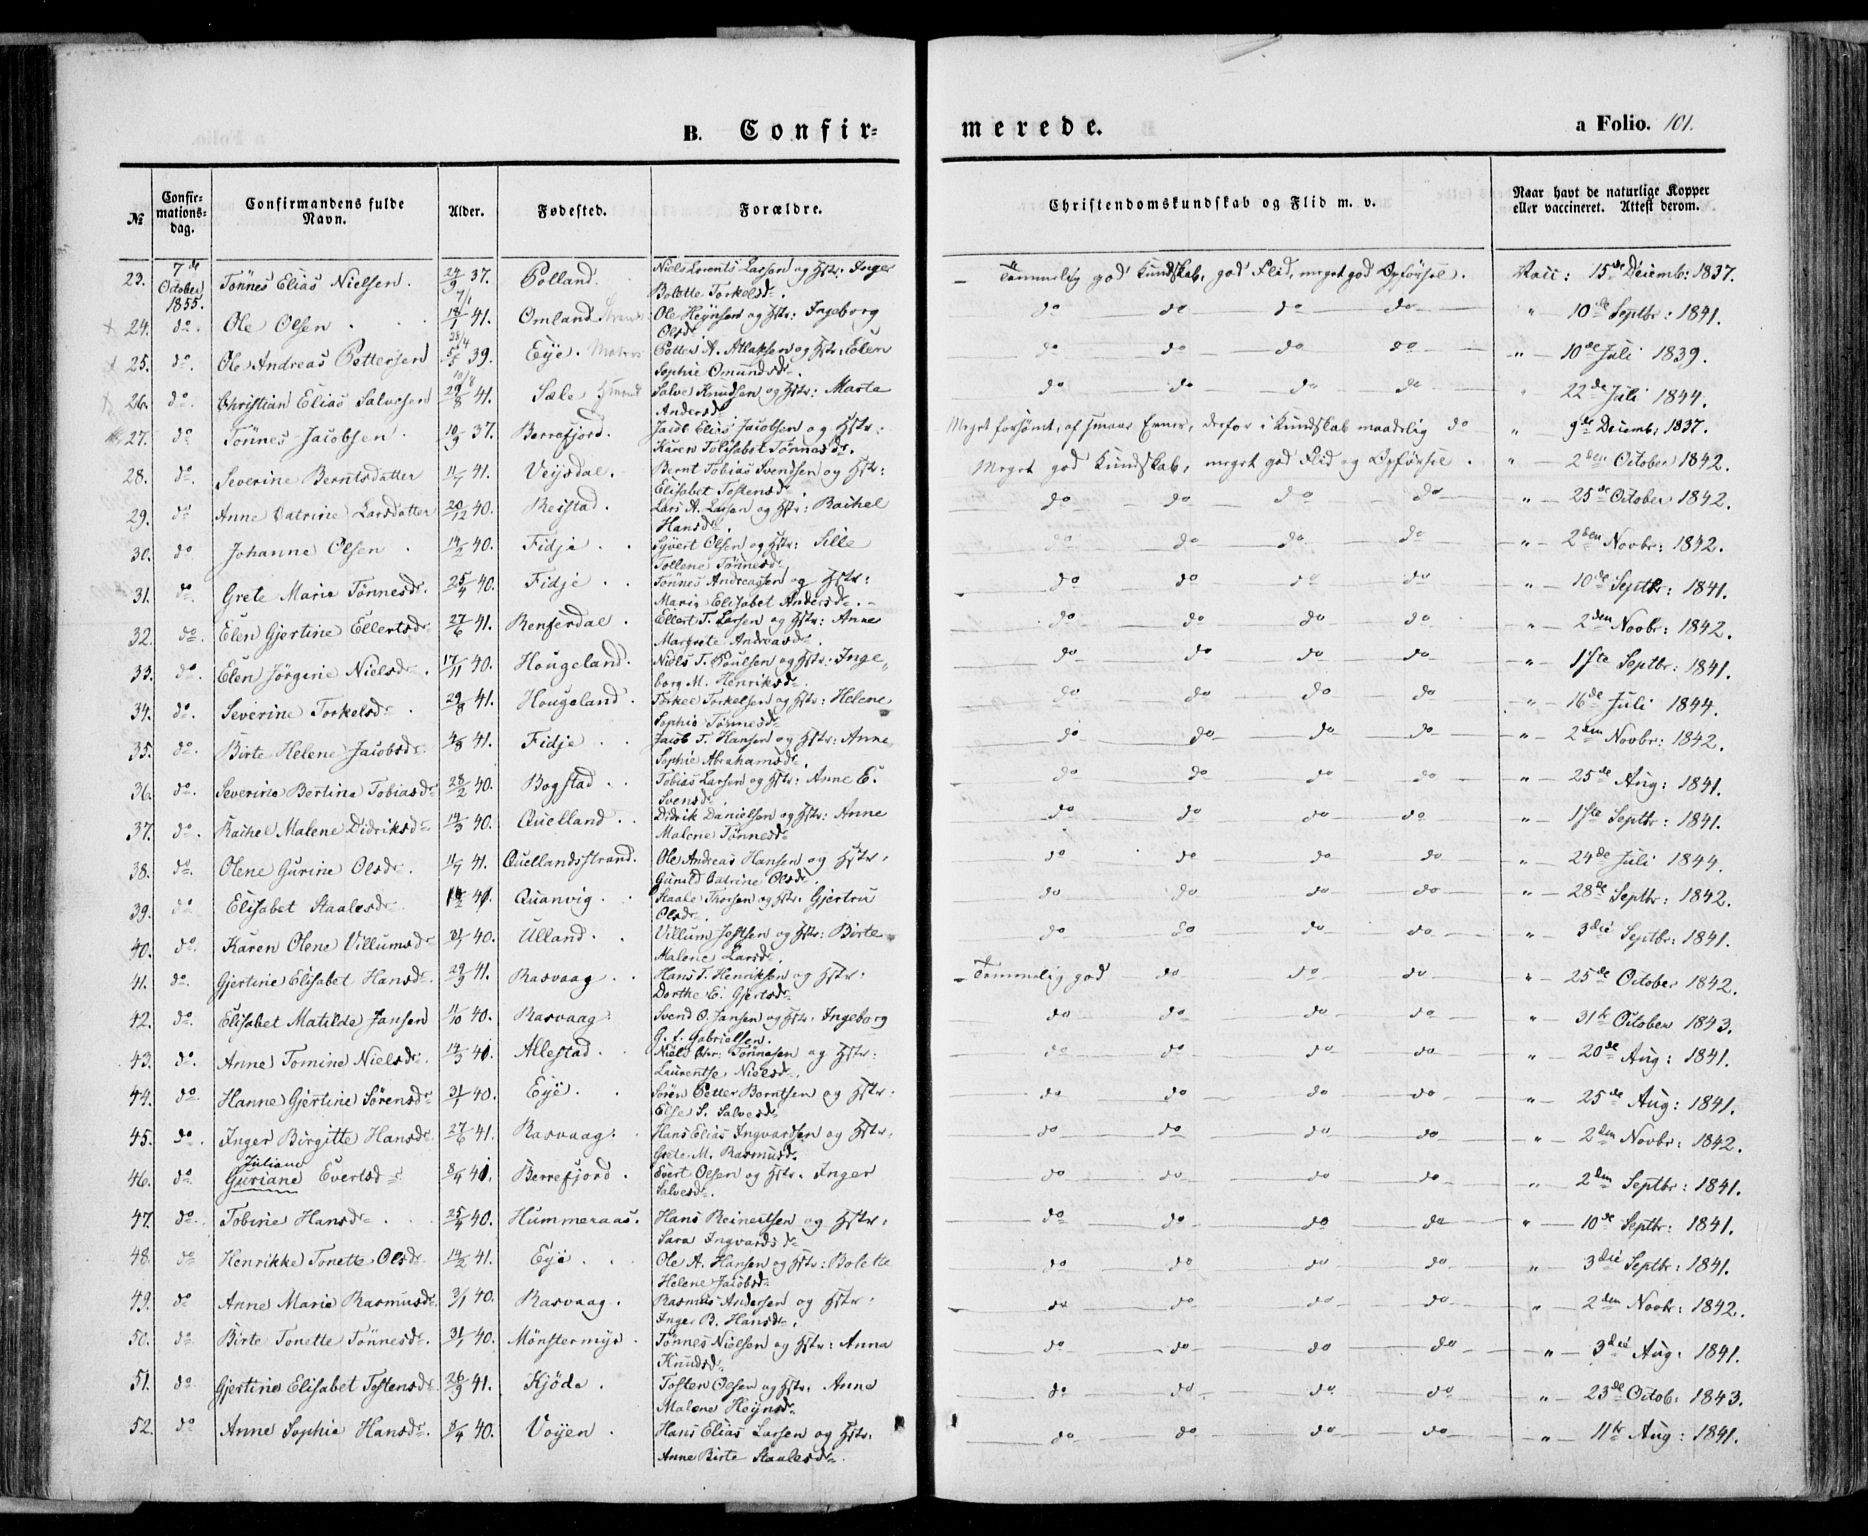 B. Confir=
merede.
a Folio. 101.
№
Confir-
mations-
dag.
Confirmandens fulde
Navn.
Alder.
Fødested.
Forældre.
Christendomskundskab og Flid m. v.
Naar havt de naturlige Kopper
eller vaccineret. Attest derom.
23. 7de October 1855. Tönnes Elias Nielsen. 24/9 37. Polland. Niels Lorents Larsen og Hstr: Inger Bolette Torkelsdr. Temmelig god Kundskab, god Flid, meget god Opförsel. Vacc: 15de Decemb: 1837.
24. do. Ole Olsen. 18/1 41. Omland Ole Heynsen og Hstr: Ingeborg Olsdr do do do do " 10de Septbr: 1841.
25. do. Ole Andreas Pettersen 39. Eye. Petter A. Atlaksen og Hstr: Elen Sophie Omundsdr. do do do do " 10de Juli 1839.
26. do. Christian Elias Salvesen 29/8 41. Sæle Salve Knudsen og Hstr: Marte Andersdr do do do do " 22de Juli 1844.
27. do Tönnes Jacobsen. 10/9 37. Berrefjord. Jacob Elias Jacobsen og Hstr: Karen Tolisabet Tönnesdr. Meget forsömt, af smaae Evner, derfor i Kundskab maadelig do " 9de Decemb: 1837.
28. do. Severine Berntsdatter 11/7 41. Veisdal. Bernt Tobias Svendsen og Hstr: Elisabet Tostensdr. Meget god Kundskab, meget god Flid og Opförsel. " 2den October 1842.
29. do Anne Catrine Larsdatter 20/12 40. Reistad. Lars A. Larsen og Hstr: Rachel Hansdr. do do do do " 25de October 1842.
30. do Johanne Olsen. 14/2 40. Fidje. Syvert Olsen og Hstr: Sille Tollene Tönnesdr do do do do " 2den Novbr: 1842.
31. do. Grete Marie Tönnesdr. 25/4 40. Fidje. Tönnes Andreassen og Hstr: Marie Elisabet Andersdr. do do do do " 10de Septbr: 1841.
32. do. Elen Gjertine Ellertsdr 27/6 41. Renferdal. Ellert T. Larsen og Hstr: Anne Margrete Andreasdr. do do do do " 2den Novbr: 1842.
33. do. Elen Jörgine Nielsdr. 17/11 40. Hougeland. Niels T. Poulsen og Hstr: Ingeborg M. Henriksdr. do do do do " 1ste Septbr: 1841.
34. do. Severine Torkelsdr. 29/8 41. Hougeland. Torkel Torkelsen og Hstr: Helene Sophie Tönnesdr do do do do " 16de Juli 1844.
35. do. Birte Helene Jacobsdr 4/8 41. Fidje. Jacob T. Hansen og Hstr: Anne Sophie Abrahamsdr. do do do do " 2den Novbr: 1842.
36. do. Severine Bertine Tobiasdr 28/2 40. Bogstad. Tobias Larsen og Hstr: Anne E. Svensdr. do do do do " 25de Aug: 1841.
37. do. Rachel Malene Didriksdr 14/3 40. Quelland. Didrik Danielsen og Hstr: Anne Malene Tönnesdr do do do do " 1ste Septbr: 1841.
38. do. Olene Gurine Olsdr. 11/7 41. Quellandsstrand. Ole Andreas Hansen og Hstr. Gunild Catrine Olsdr. do do do do " 24de Juli 1844.
39. do Elisabet Staalesdr 41. Quanvig. Staale Thorsen og Hstr. Gjertru Olsdr. do do do do " 28de Septbr: 1842.
40. do. Karen Olene Villumsdr 40. Ulland. Villum Jostsen og Hstr: Birte Malene Larsdr. do do do do " 3die Septbr: 1841.
41. do. Gjertine Elisabet Hansdr 29/3 41. Rasvaag. Hans T. Henriksen og Hstr: Dorthe E. Gjertsdr Temmelig god do do do " 25de October 1842.
42. do. Elisabet Matilde Jansen 11/10 40. Rasvaag. Svend O. Jansen og Hstr. Ingeborg G. f. Gabrielsen. do do do do " 31te October 1843.
43. do. Anne Tomine Nielsdr. 14/3 40. Allestad. Niels Chr: Tönnesen og Hstr: Laurentse Nielsdr. do do do do " 20de Aug: 1841.
44. do Hanne Gjertine Sörensdr 31/1 40. Eye. Sören Petter Berntsen og Hstr: Else S. Salvesdr do do do do " 25de Aug: 1841.
45. do. Inger Birgitte Hansdr. 27/6 41. Rasvaag. Hans Elias Ingvardsen og Hstr. Grete M. Rasmusdr. do do do do " 2den Novbr: 1842.
46. do Juliane
Guriane Evertsdr 8/4 40. Berrefjord. Evert Olsen og Hstr. Inger Salvesdr. do do do do " 2den Septbr: 1841.
47. do. Tobine Hansdr. 25/4 40. Hummeraas. Hans Reinertsen og Hstr: Sara Ingvardsdr do do do do " 10de Septbr: 1841.
48. do Henrikke Tonette Olsdr 14/2 41. Eye. Ole A. Hansen og Hstr: Bolette Helene Jacobsdr do do do do " 3die Septbr: 1841.
49. do Anne Marie Rasmusdr. 3/1 40. Rasvaag. Rasmus Andersen og Hstr: Inger B. Hansdr. do do do do " 2den Novbr: 1842.
50. do Birte Tonette Tönnesdr. 31/1 40. Mönstermyr. Tönnes Nielsen og Hstr: Anna Knudsdr do do do do " 3die Aug: 1841.
51. do Gjertine Elisabet Tostensdr 26/9 41. Kjöde. Tosten Olsen og Hstr. Anne Malene Heynsdr do do do do " 23de Octob: 1843.
52. do Anne Sophie Hansdr. 8/4 40. Voyen. Hans Elias Larsen og Hstr. Anne Birte Staalesdr. do do do do " 11te Aug: 1841.